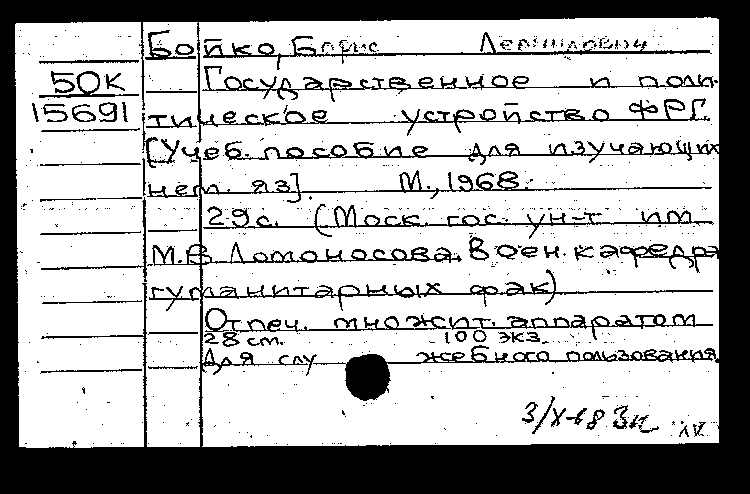 Бойко, Борис Леонидович
50К Государственное и поли-
15691 тическое устройство ФРГ.
[Учеб. пособие для изучающих
нем. яз]. М., 1968.
29с. (Моск. гос. ун-т им.
М.В. Ломоносова. Воен. кафедра
гуманитарных фак)
Отпеч. множит. аппаратом
28 см. 100 экз.
Для служебного пользования.
3/X-68